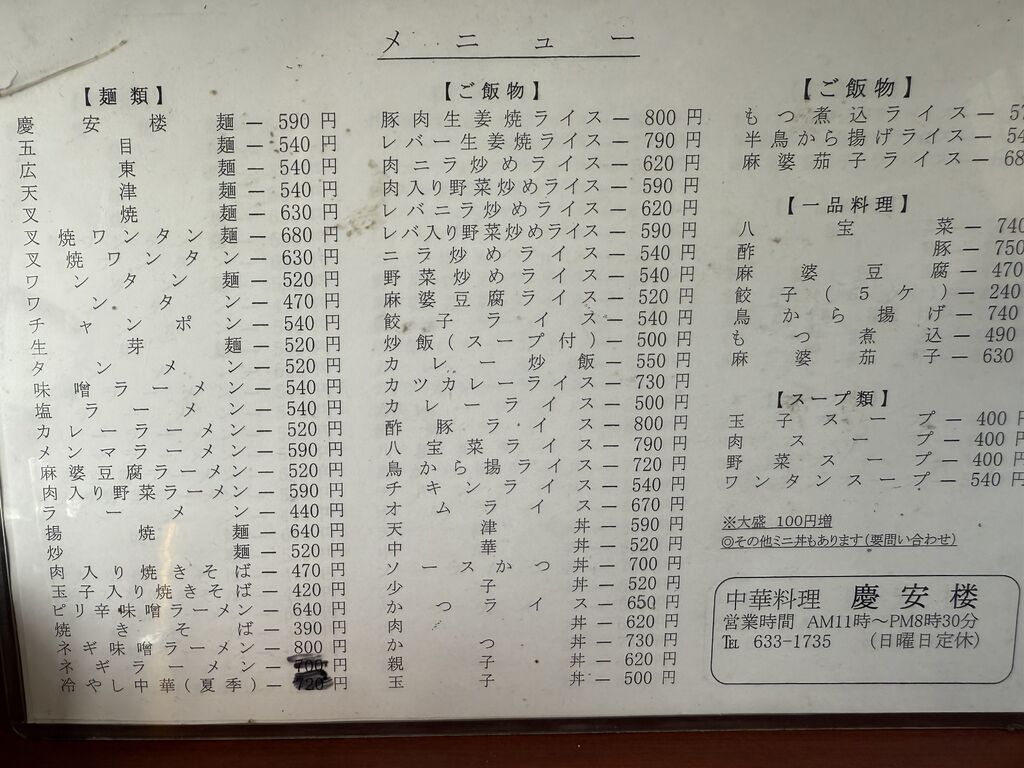 メニュー
【麺類】
慶安楼麺― 590 円
五目麺― 540 円
広東麺― 540 円
天津麺― 540 円
叉焼麺― 630 円
叉焼ワンタン麺― 680 円
叉焼ワンタン― 630 円
ワンタン麺― 520 円
ワンタン― 470 円
チャンポン― 540 円
生芽麺― 520 円
タンメン― 520 円
味噌ラーメン― 540 円
塩ラーメン― 540 円
カレーラーメン― 520 円
メンマラーメン― 590 円
麻婆豆腐ラーメン― 520 円
肉入り野菜ラーメン― 590 円
ラーメン― 440 円
揚焼麺― 640 円
炒麺― 520 円
肉入り焼きそば― 470 円
玉子入り焼きそば― 420 円
ピリ辛味噌ラーメン― 640 円
焼きそば― 390 円
ネギ味噌ラーメン― 800 円
ネギラーメン― 700 円
冷やし中華(夏季)― 720 円
【ご飯物】
豚肉生姜焼ライス― 800 円
レバー生姜焼ライス― 790 円
肉ニラ炒めライス― 620 円
肉入り野菜炒めライス― 590 円
レバニラ炒めライス― 620 円
レバ入り野菜炒めライス― 590 円
ニラ炒めライス― 540 円
野菜炒めライス― 540 円
麻婆豆腐ライス― 520 円
餃子ライス― 540 円
炒飯(スープ付)― 500 円
カレー炒飯― 550 円
カツカレーライス― 730 円
カレーライス― 500 円
酢豚ライス― 800 円
八宝菜ライス― 790 円
鳥から揚ライス― 720 円
チキンライス― 540 円
オムライス― 670 円
天津丼― 590 円
中華丼― 520 円
ソースかつ丼― 700 円
少子丼― 520 円
かつライス― 650 円
肉丼― 620 円
かつ丼― 730 円
親子丼― 620 円
玉子丼― 500 円
【ご飯物】
もつ煮込ライス―
半鳥から揚げライス―
麻婆茄子ライス―
【一品料理】
八宝菜― 740
酢豚― 750
麻婆豆腐― 470
餃子(5ケ)― 240
鳥から揚げ― 740
もつ煮込― 490
麻婆茄子― 630
【スープ類】
玉子スープ― 400 円
肉スープ― 400 円
野菜スープ― 400 円
ワンタンスープ― 540 円
※大盛 100円増
◎その他ミニ丼もあります(要問い合わせ)
中華料理 慶安楼
営業時間 AM11時～PM8時30分
℡ 633-1735 (日曜日定休)